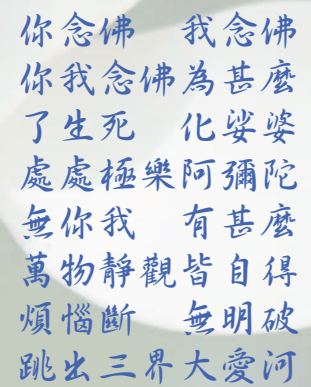 你念佛 我念佛
你我念佛為甚麼
了生死 化娑婆
處處極樂阿彌陀
無你我 有甚麼
萬物靜觀皆自得
煩惱斷 無明破
跳出三界大愛河